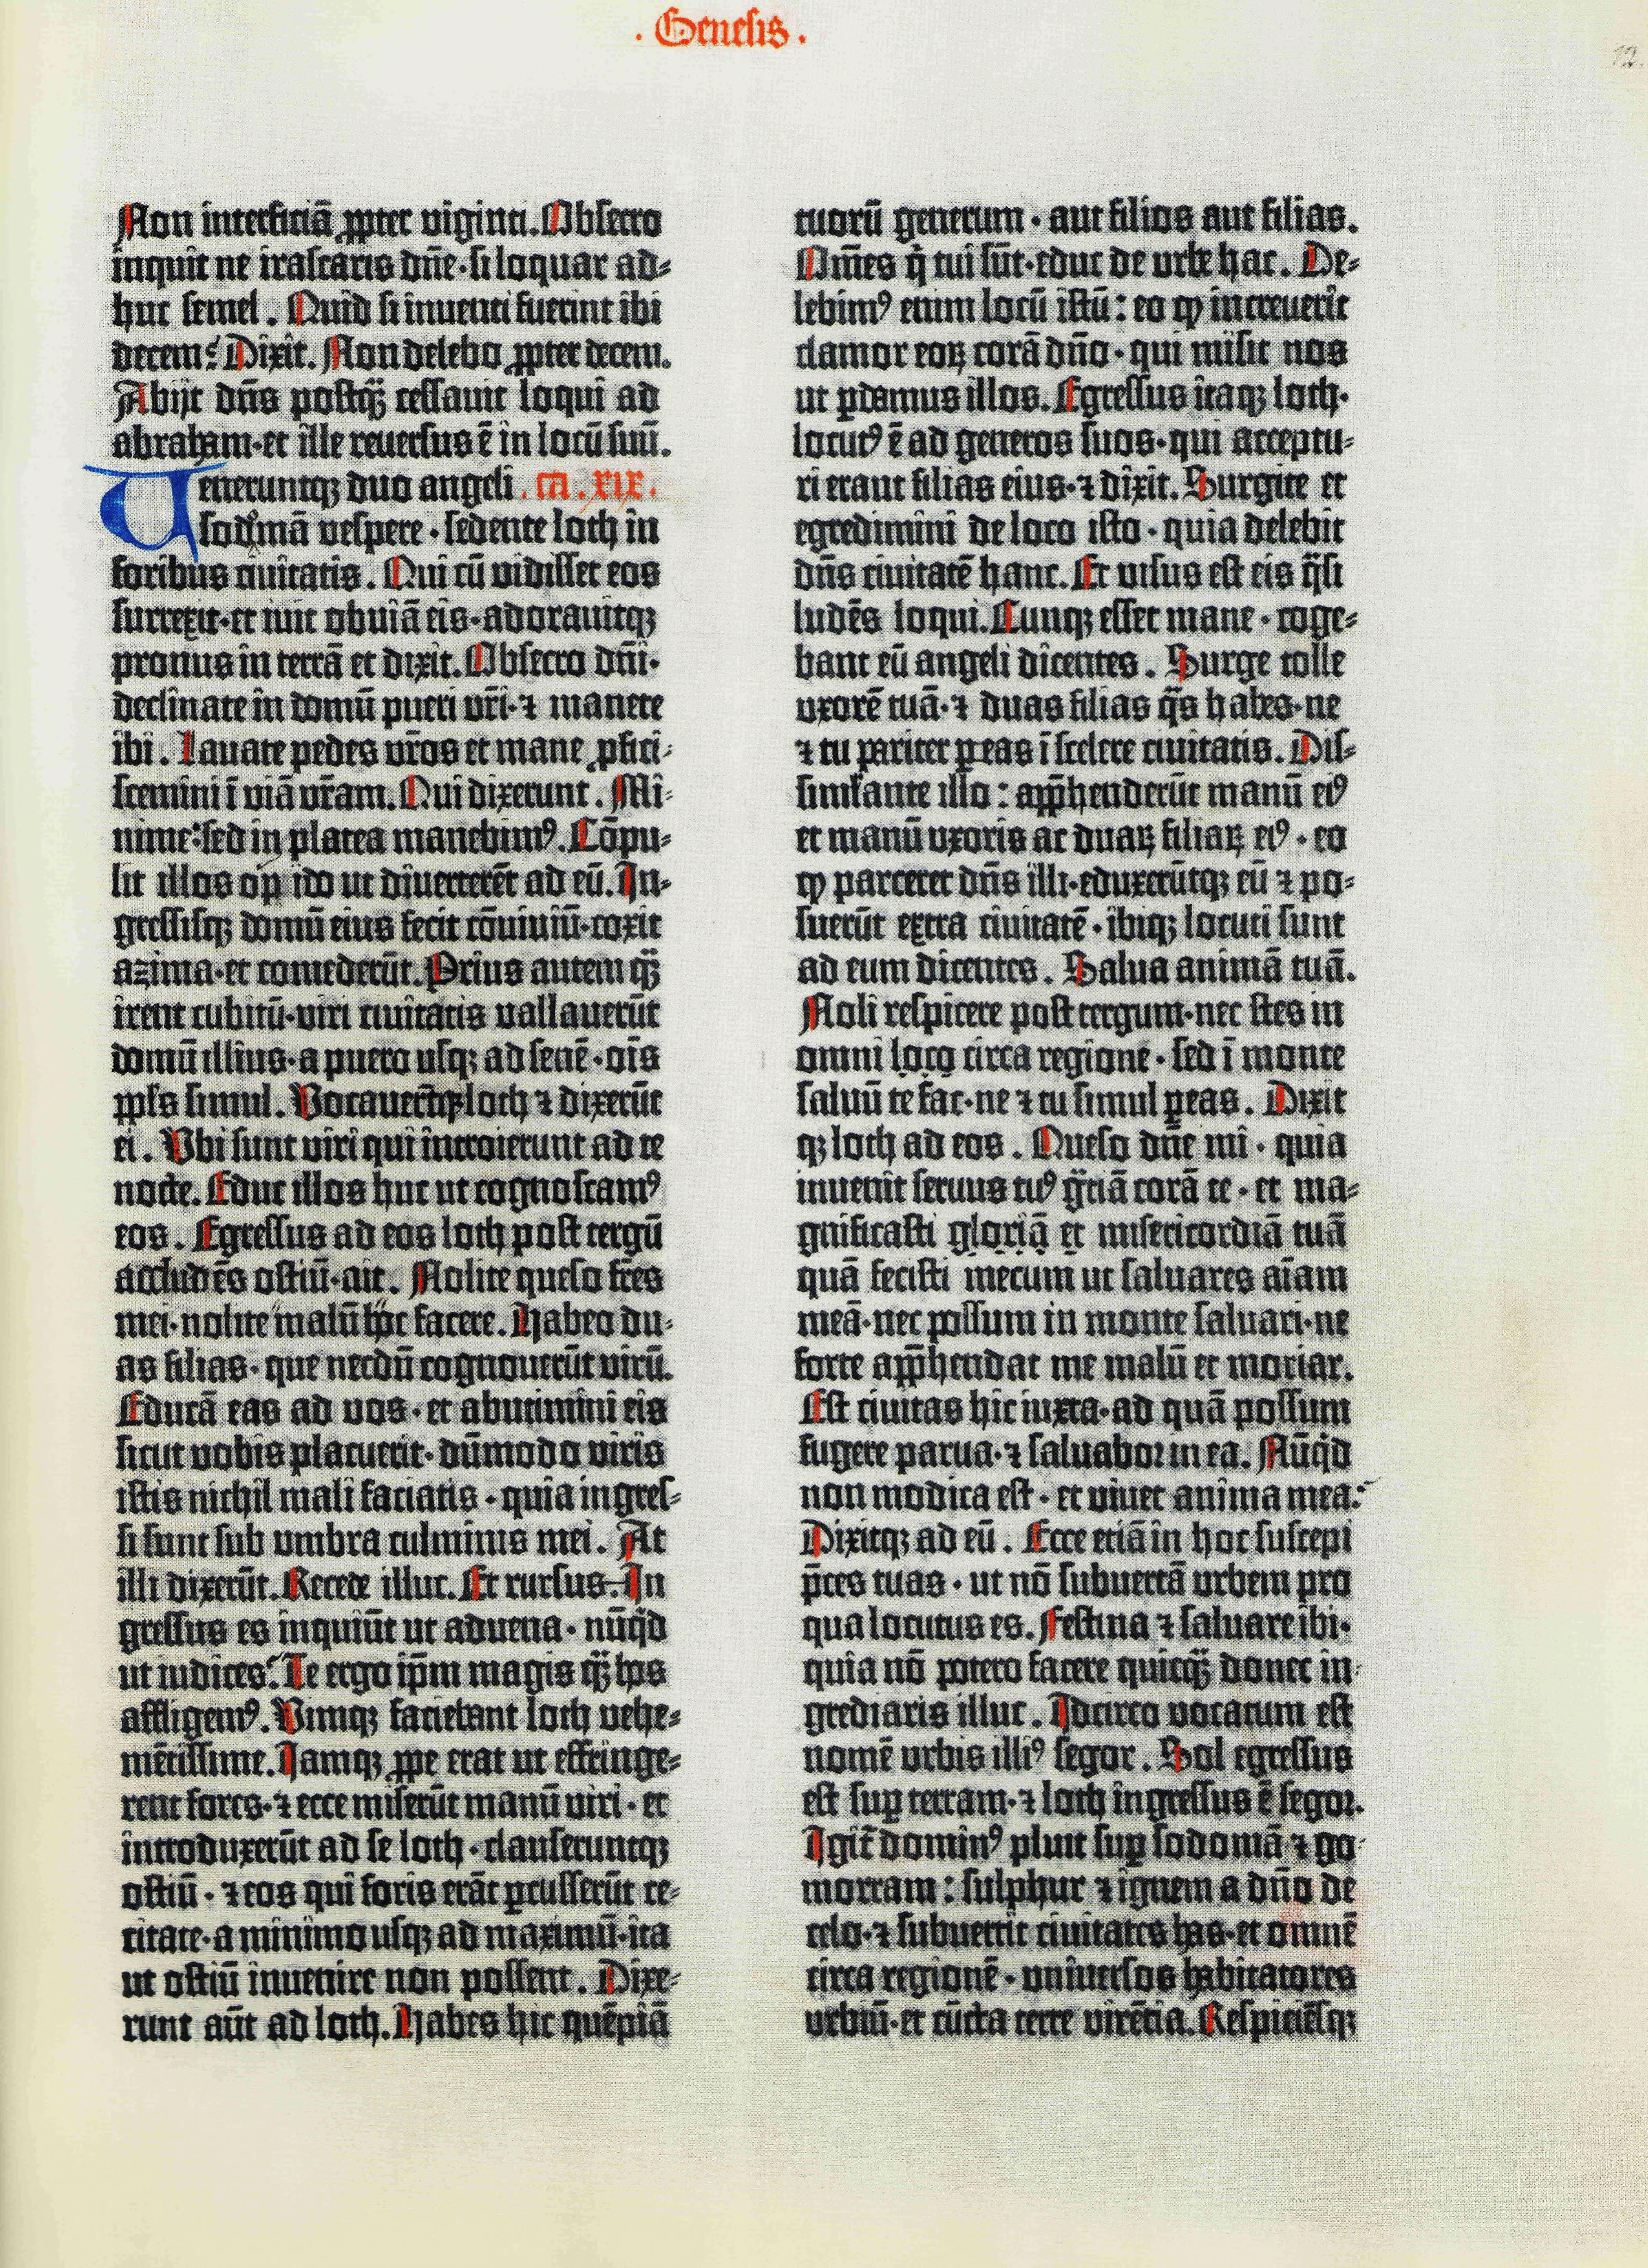 . Genesis .
12.
Non interficiā ꝓpter viginti. Obsecro
inquit ne irascaris dn̄e·si loquar ad⸗
huc semel. Quid si inuenti fuerint ibi
decem? Dixit. Non delebo ꝓpter decem.
Abijt dn̄s postqᷓ cessauit loqui ad
abraham·et ille reuersus ē in locū suū.
Ueneruntqꝫ duo angeli . ca . xix .
sodomā vespere·sedente loth in
foribus ciuitatis. Qui cū vidisset eos
surrexit·et iuit obuiā eis·adorauitqꝫ
pronus in terrā et dixit. Obsecro dn̄i·
declinate in domū pueri vr̄i·⁊ manete
ibi. Lauate pedes vr̄os et mane ꝓfici⸗
scemini ī viā vr̄am. Qui dixerunt. Mi⸗
nime: sed in platea manebimꝰ. Cōpu⸗
lit illos op̄ido ut diuerterēt ad eū. In⸗
gressisqꝫ domū eius fecit cōuiuiū·coxit
azima·et comederūt. Prius autem qᷓ
irent cubitū·viri ciuitatis vallauerūt
domū illius·a puero usqꝫ ad senē·oīs
ppl̄s simul. Vocauer̄tqꝫ loth ⁊ dixerūt
ei. Vbi sunt viri qui introierunt ad te
nocte. Educ illos huc ut cognoscamꝰ
eos. Egressus ad eos loth post tergū
accludēs ostiū·ait. Nolite queso fr̄es
mei·nolite malū hoc facere. Habeo du⸗
as filias·que necdū cognouerūt virū.
Educā eas ad vos·et abutimini eis
sicut vobis placuerit·dūmodo viris
istis nichil mali faciatis·quia ingres⸗
si sunt sub umbra culminis mei. At
illi dixerūt. Recede illuc. Et rursus. In
gressus es inquiūt ut aduena·nūqͥd
ut iudices? Te ergo ip̄m magis qᷓ hos
affligemꝰ. Vimqꝫ faciebant loth vehe⸗
mētissime. Iamqꝫ ꝓpe erat ut effringe⸗
rent fores·⁊ ecce miserūt manū viri·et
introduxerūt ad se loth·clauseruntqꝫ
ostiū·⁊ eos qui foris erāt ꝑcusserūt ce⸗
citate·a minimo usqꝫ ad maximū·ita
ut ostiū inuenire non possent. Dixe⸗
runt aūt ad loth. Habes hic quēpiā
tuorū generum·aut filios aut filias.
Om̄es qͥ tui sūt·educ de urbe hac. De⸗
lebimꝰ enim locū istū: eo ꝙ increuerit
clamor eoꝝ corā dn̄o·qui misit nos
ut ꝑdamus illos. Egressus itaqꝫ loth·
locutꝰ ē ad generos suos·qui acceptu⸗
ri erant filias eius·⁊ dixit. Surgite et
egredimini de loco isto·quia delebit
dn̄s ciuitatē hanc. Et visus est eis qᷓsi
ludēs loqui. Cunqꝫ esset mane·coge⸗
bant eū angeli dicentes. Surge tolle
uxorē tuā·⁊ duas filias qᷓs habes·ne
⁊ tu pariter ꝑeas ī scelere ciuitatis. Dis⸗
simĺante illo: app̄henderūt manū eiꝰ
et manū uxoris ac duaꝝ filiaꝝ eiꝰ·eo
ꝙ parceret dn̄s illi·eduxerūtqꝫ eū ⁊ po⸗
suerūt extra ciuitatē·ibiqꝫ locuti sunt
ad eum dicentes. Salua animā tuā.
Noli respicere post tergum·nec stes in
omni loco circa regione·sed ī monte
saluū te fac·ne ⁊ tu simul ꝑeas. Dixit
qꝫ loth ad eos. Queso dn̄e mi·quia
inuenit seruus tuꝰ gᷓciā corā te·et ma⸗
gnificasti gloriā et misericordiā tuā
quā fecisti mecum ut saluares aīam
meā·nec possum in monte saluari·ne
forte app̄hendat me malū et moriar.
Est ciuitas hic iuxta·ad quā possum
fugere parua·⁊ saluabor in ea. Nūqͥd
non modica est·et viuet anima mea?
Dixitqꝫ ad eū. Ecce etiā in hoc suscepi
p̄ces tuas·ut nō subuertā urbem pro
qua locutus es. Festina ⁊ saluare ibi·
quia nō potero facere quicqᷓ donec in⸗
grediaris illuc. Idcirco vocatum est
nomē urbis illiꝰ segor. Sol egressus
est suꝑ terram·⁊ loth ingressus ē segor.
Igit̄ dominꝰ pluit suꝑ sodomā ⁊ go⸗
morram: sulphur ⁊ ignem a dn̄o de
celo·⁊ subuertit ciuitates has·et omnē
circa regionē·vniuersos habitatores
urbiū·et cūcta terre virētia. Respiciēsqꝫ